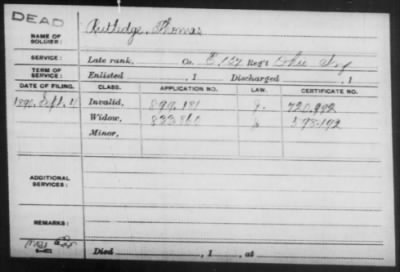 DEAD
NAME OF SOLDIER: Rutlidge, Thomas
SERVICE: Late rank, Co. E, 127 Reg't Ohio Inf
TERM OF SERVICE: Enlisted , 1 Discharged , 1
DATE OF FILING. CLASS. APPLICATION NO. LAW. CERTIFICATE NO.
1890, Sept. 11 Invalid, 899.181 J. 720.992
Widow, 833.860 J 598.192
Minor,
ADDITIONAL SERVICES:
REMARKS:
Died , 1 , at